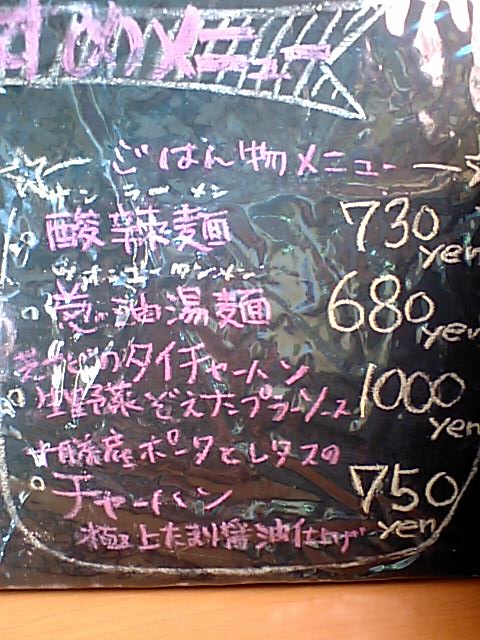 すめメニュー
ごはん物メニュー
サンラーメン
酸辣麺 730
yen
葱油湯麺 680
yen
のタイチャーハン
生野菜ぞえナンプラーソース 1000
yen
ポークとレタスの
チャーハン 750
極上たまり醤油仕上げ yen